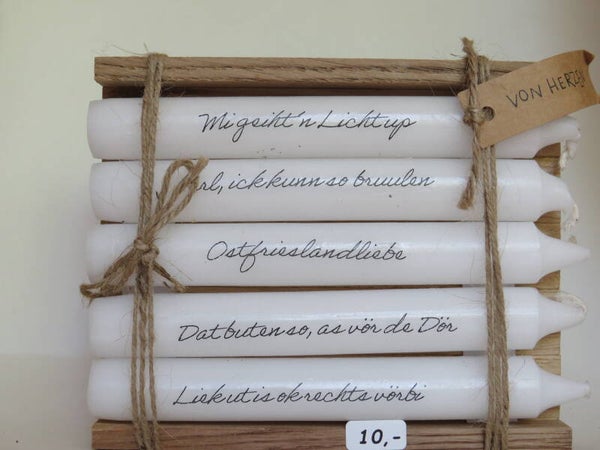 VON HERZEN
Mi gsiht'n Licht up
ick kunn so bruulen
Ostfrieslandliebe
Dat buten so, as vör de Dör
Liek ut is ok rechts vörbi
10,-